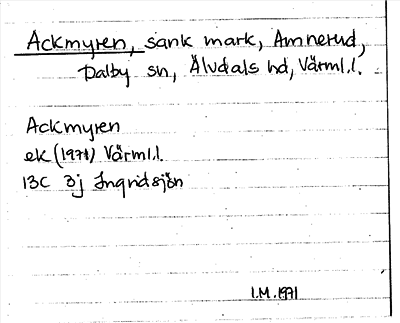 Ackmyren, sank mark, Amnerud,
Dalby sn, Älvdals hd, Värml.l.
Ackmyren
ek (1971) Värml.l.
13C 3j Ingridsjön
I.M. 1971